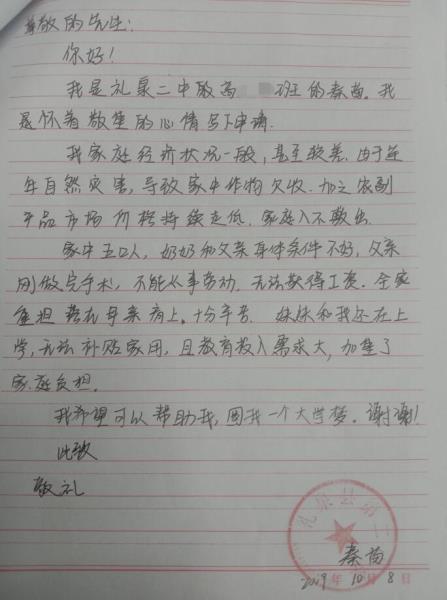 尊敬的先生:
你好!
我是礼泉二中的高 班的秦苗。我
是怀着敬坠的心情写下申请.
我家庭经济状况一般,甚至较差.由于近
年自然灾害,导致家中作物欠收.加之农副
产品市场价格持续走低.家庭入不敷出.
家中五口人,奶奶和父亲身体条件不好,父亲
刚做完手术,不能从事劳动.无法获得工资.全家
重担落在母亲肩上。十分辛苦. 妹妹和我还在上
学,无法补贴家用,且教育投入需求大,加重了
家庭负担.
我希望可以帮助我,圆我一个大学梦。谢谢!
此致
敬礼
礼泉县第二
秦苗
2019年10月8日